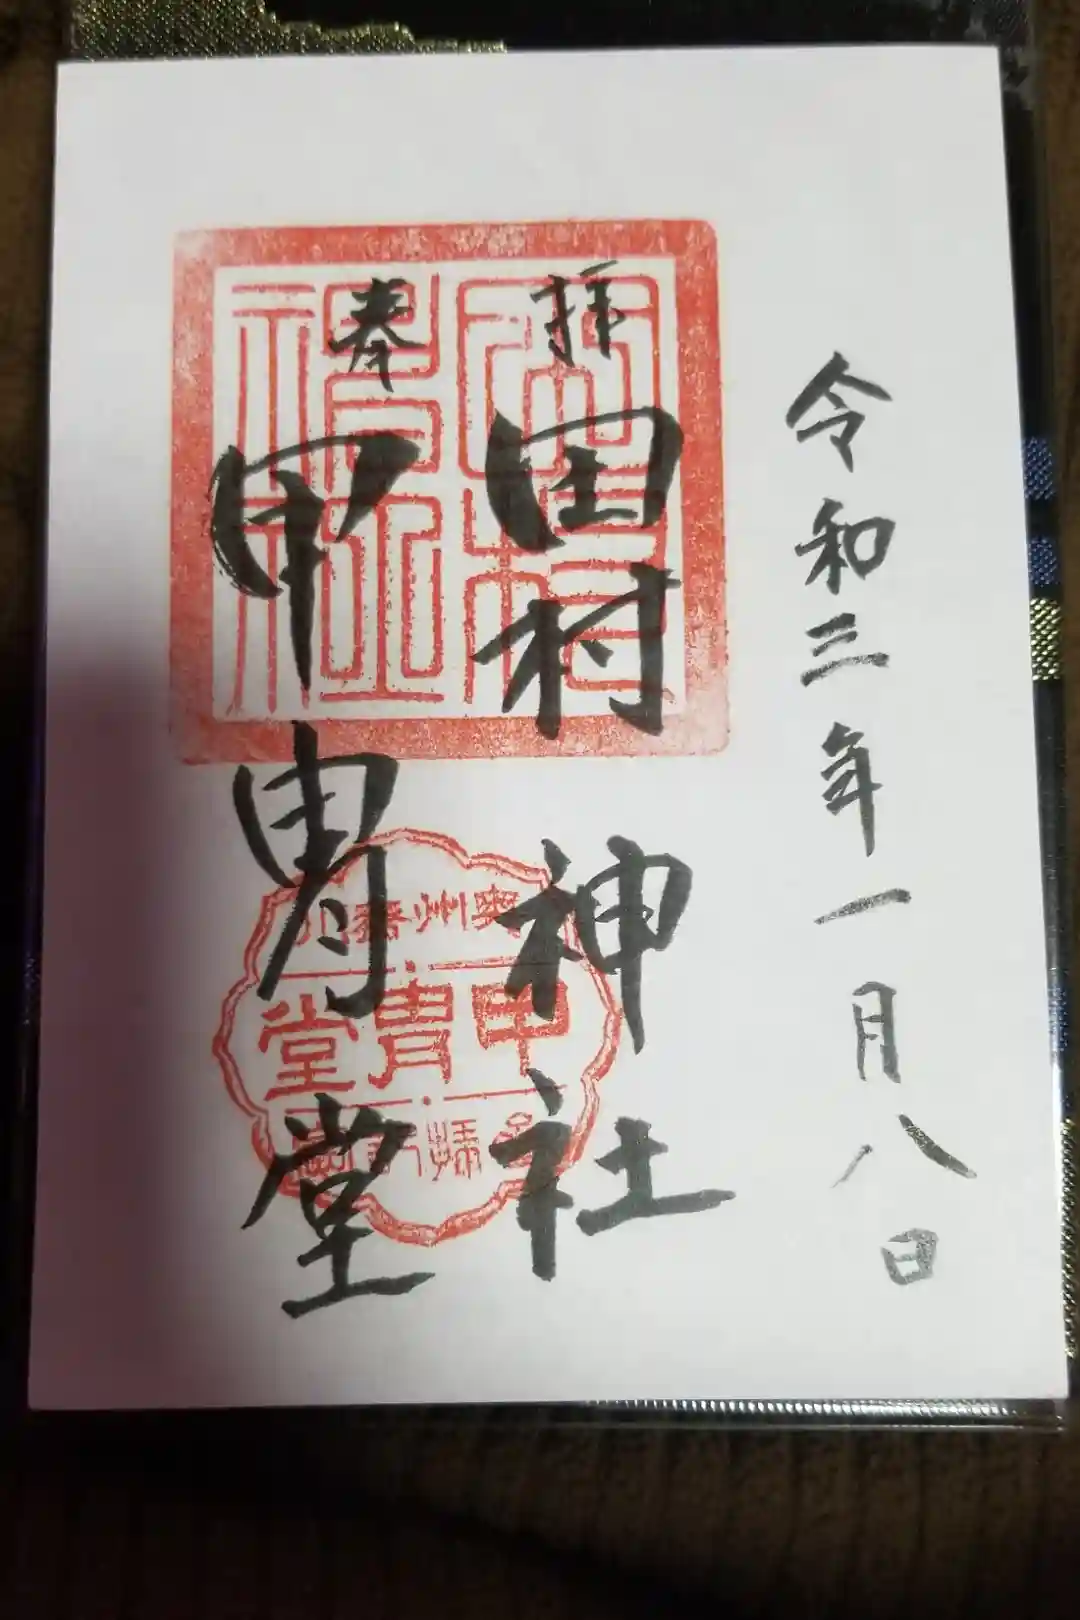 令和三年一月八日
拝
田村神社
奉
甲冑堂
田村
神社
奥州斎川
甲冑堂